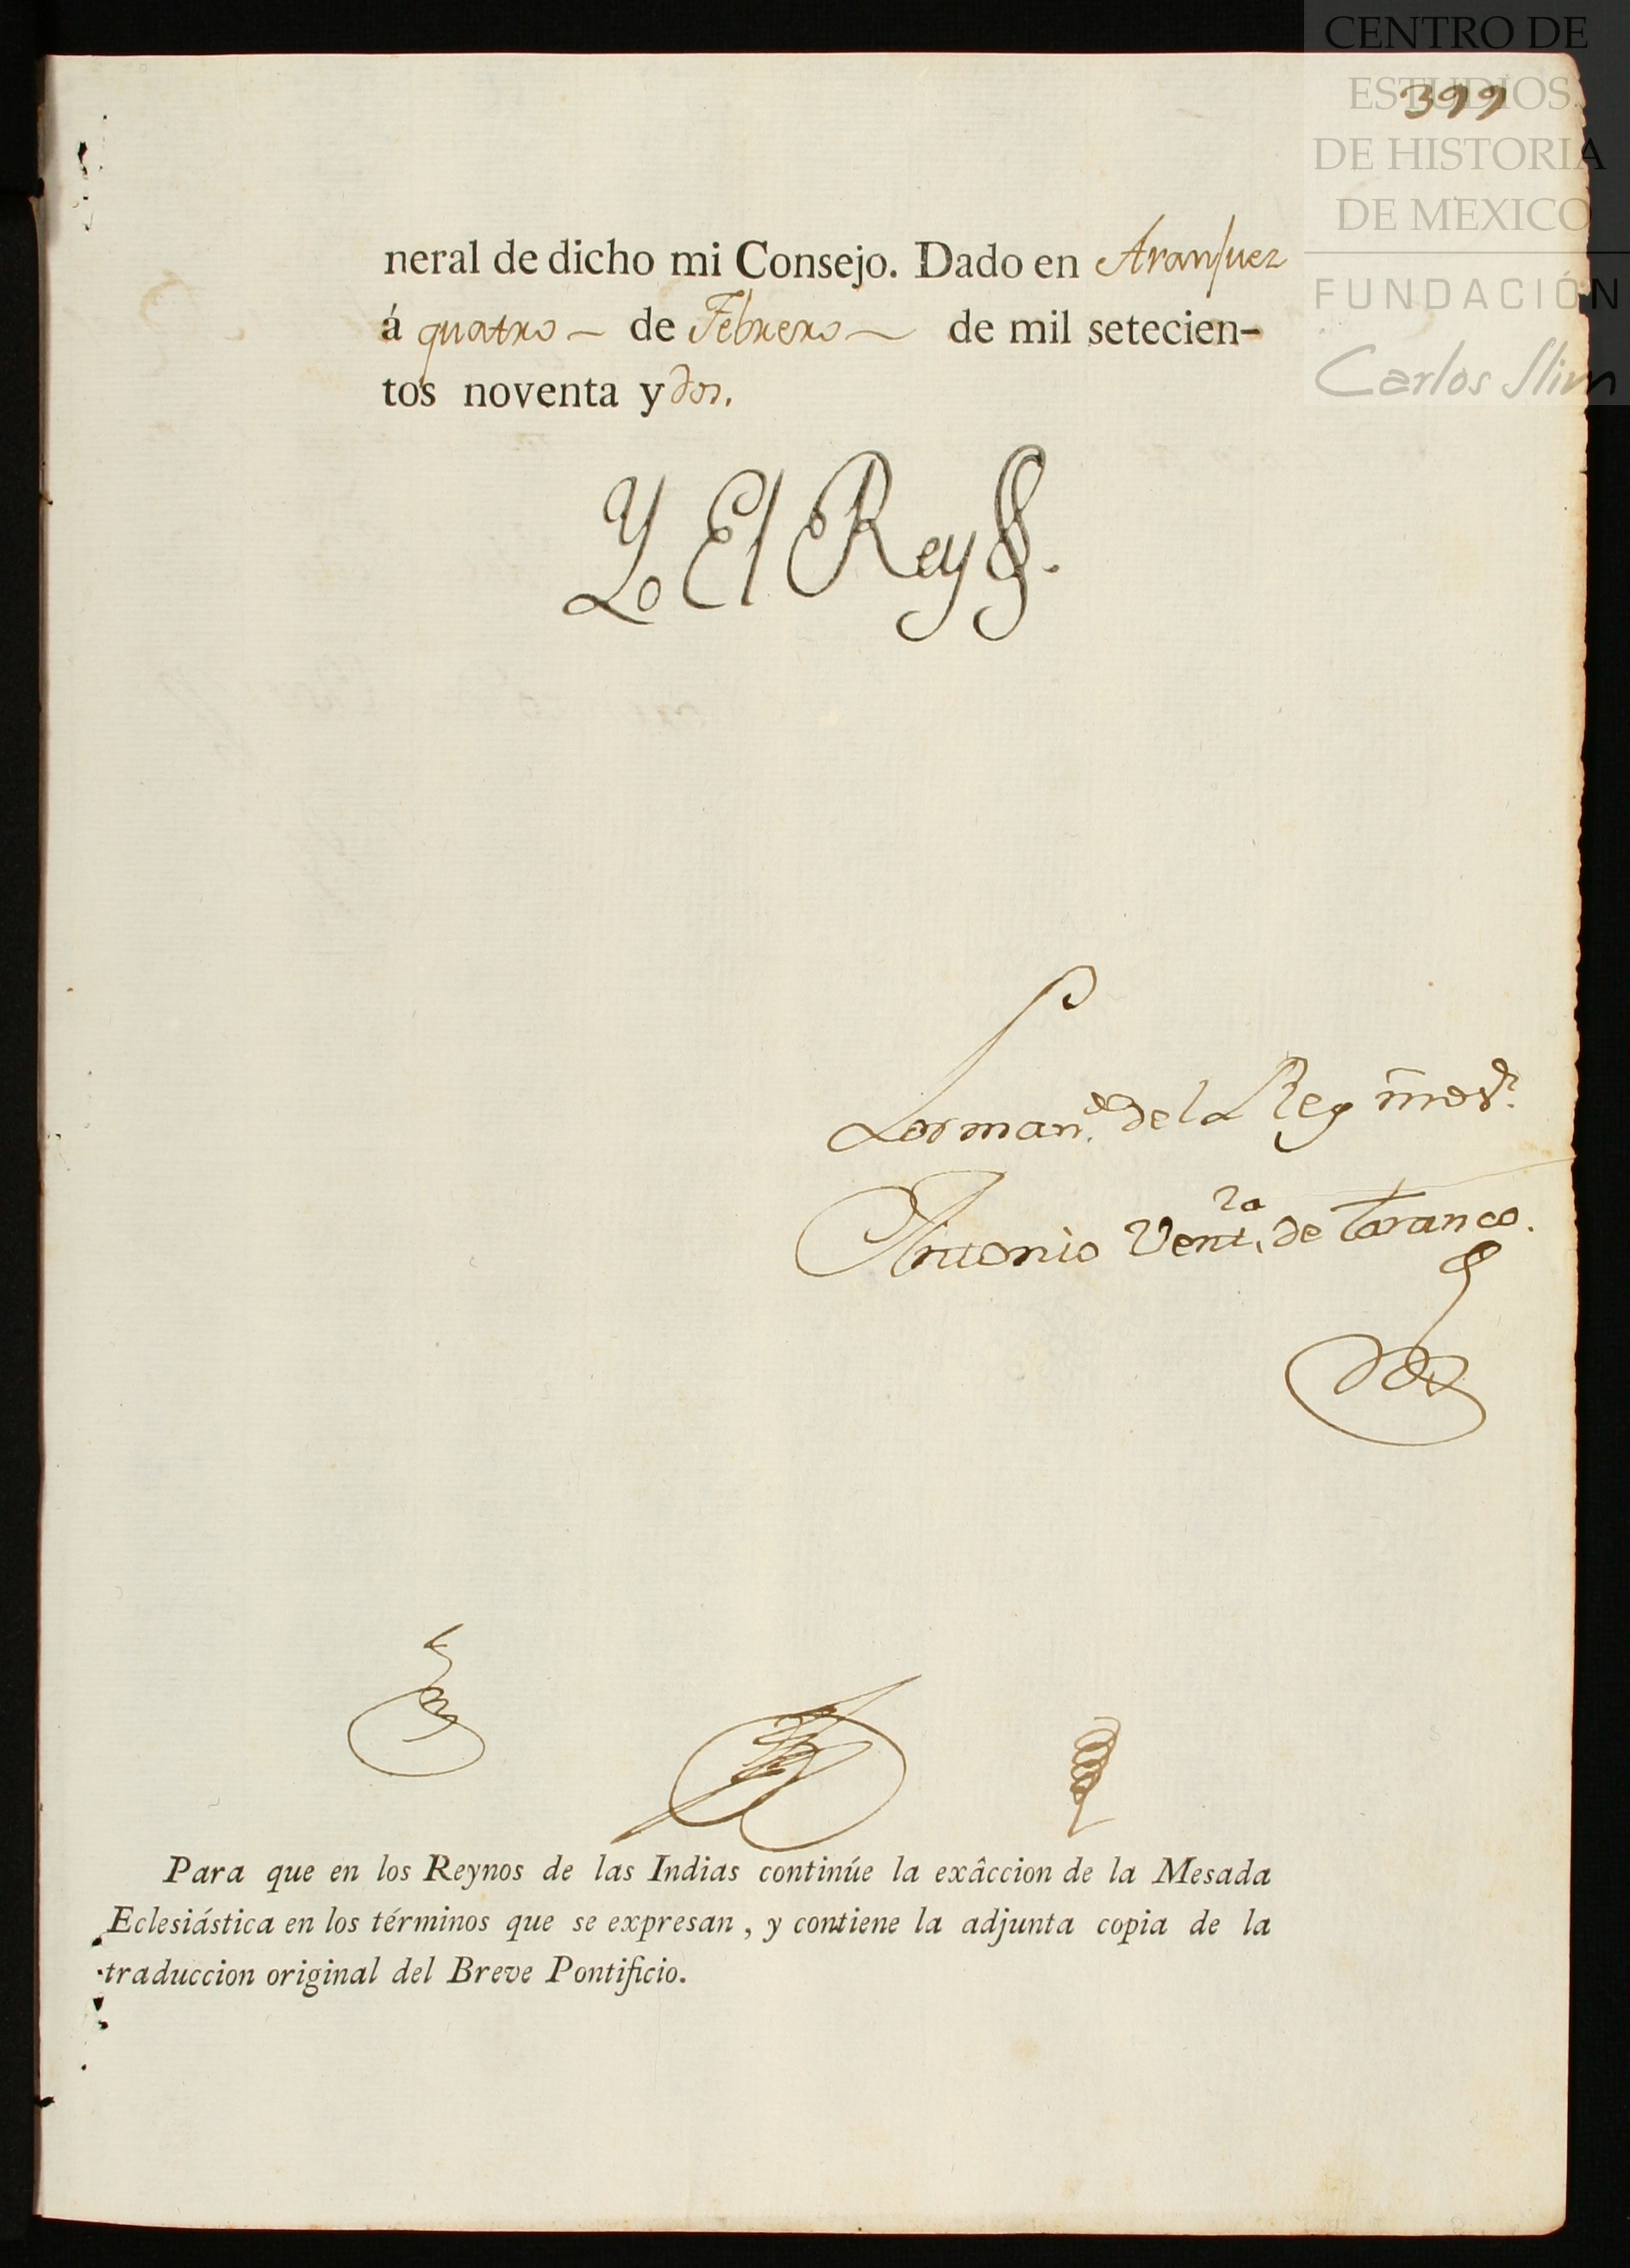 CENTRO DE
ESTUDIOS
DE HISTORIA
DE MEXICO
FUNDACIÓN
Carlos Slim
399
neral de dicho mi Consejo. Dado en Aranjuez
á quatro de Febrero de mil setecien-
tos noventa y dos.
Yo El Rey
Por man.do del Rey
Antonio Vent.ra de Taranco.
Para que en los Reynos de las Indias continúe la exâccion de la Mesada
Eclesiástica en los términos que se expresan, y contiene la adjunta copia de la
traduccion original del Breve Pontificio.